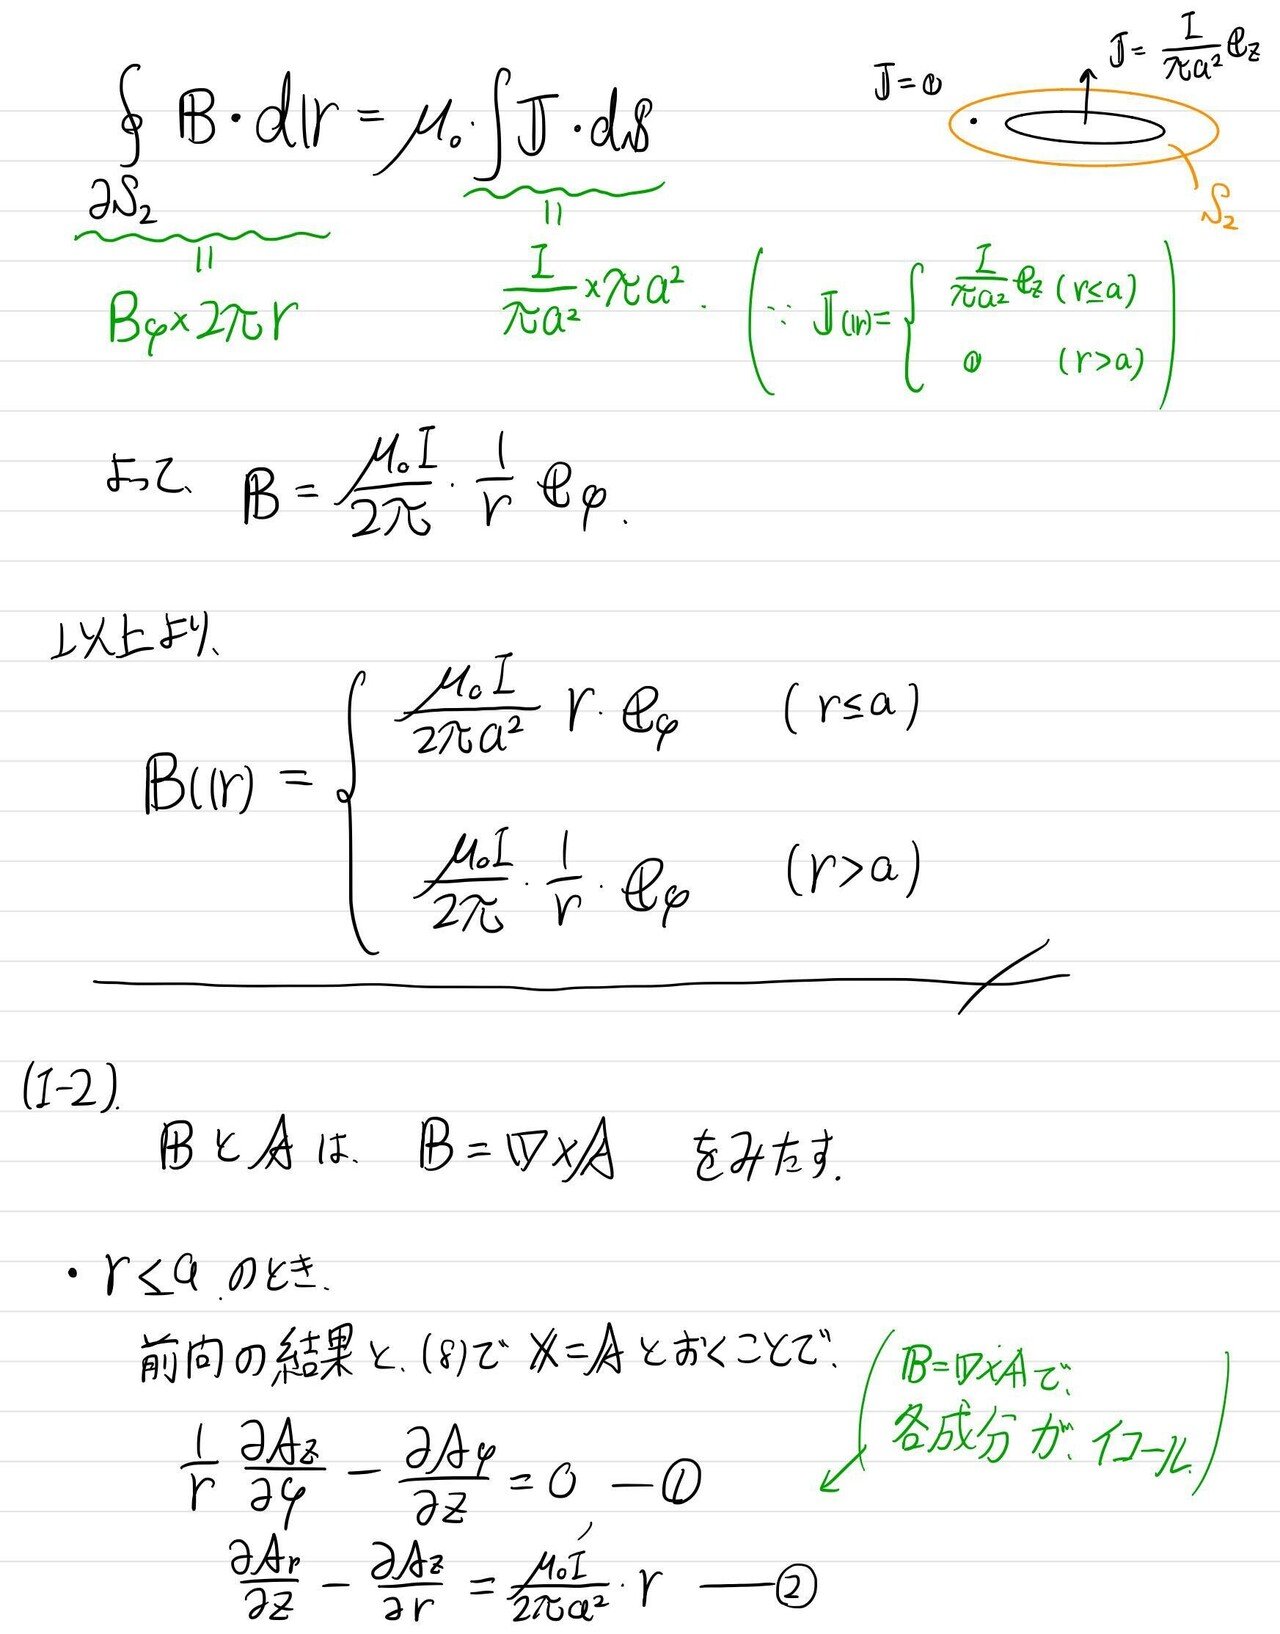 ∮_{∂S₂} 𝔹・d𝕣 = μ₀・∫ 𝕁・d𝕊
𝕁 = 𝟘
𝕁 = I/πa² 𝕖z
S₂
‖
‖
Bφ × 2πr
I/πa² × πa².
(∵ 𝕁(𝕣) = { I/πa² 𝕖z (r≤a)
𝟘 (r>a) )
よって、 𝔹 = μ₀I/2π・1/r 𝕖φ.
以上より、
𝔹(𝕣) = { μ₀I/2πa² r・𝕖φ (r≤a)
μ₀I/2π・1/r・𝕖φ (r>a)
(I-2).
𝔹と𝔸は、 𝔹=∇×𝔸 をみたす.
・r≤a のとき、
前向の結果と、(8)で 𝕏=𝔸 とおくことで、
(𝔹=∇×𝔸で、
各成分が、イコール)
1/r ∂Az/∂φ − ∂Aφ/∂z = 0 —①
∂Ar/∂z − ∂Az/∂r = μ₀I/2πa²・r —②